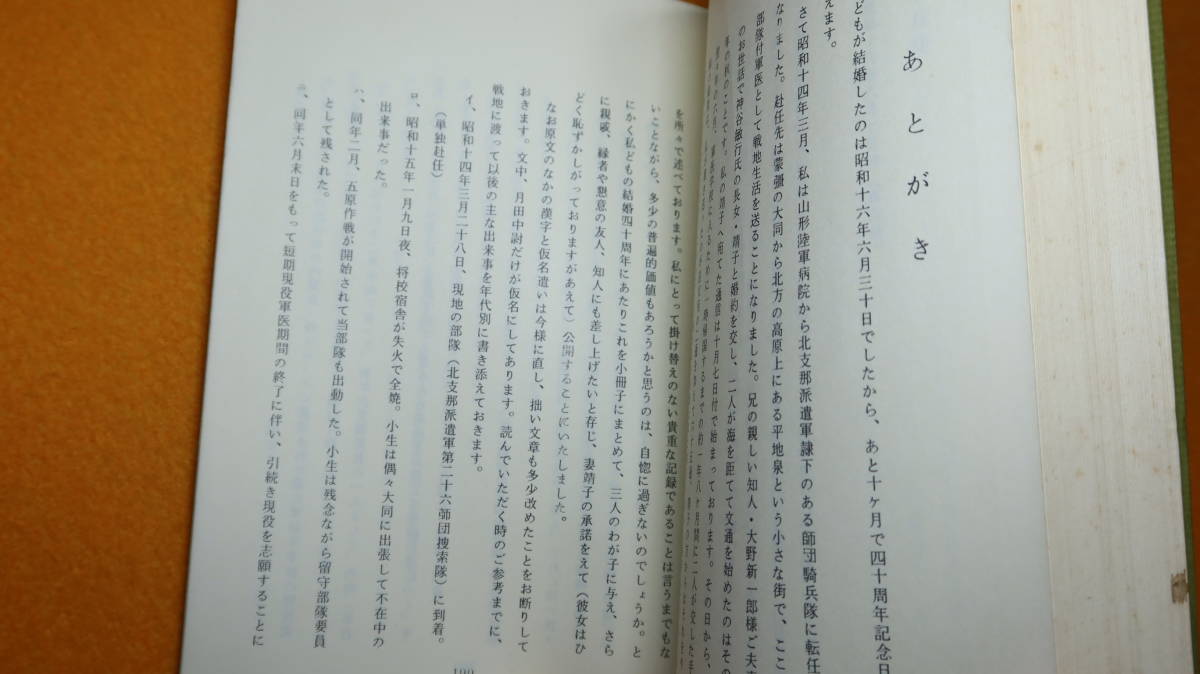 あとがき
どもが結婚したのは昭和十六年六月三十日でしたから、あと十ケ月で四十周年記念日
えます。
さて昭和十四年三月、私は山形陸軍病院から北支那派遣軍隷下のある師団騎兵隊に転任
なりました。赴任先は蒙彊の大同から北方の高原上にある平地泉という小さな街で、ここ
部隊付軍医として戦地生活を送ることになりました。兄の親しい知人・大野新一郎様ご夫妻
のお世話で神谷敏行氏の長女・靖子と婚約を交し、二人が海を距てて文通を始めたのはその
年の秋のことです。私の靖子へ宛てた通信は十月七日付で始まっております。その日から、
を所々で述べております。私にとって掛け替えのない貴重な記録であることは言うまでもな
いことながら、多少の普遍的価値もあろうかと思うのは、自惚に過ぎないのでしょうか。と
にかく私どもの結婚四十周年にあたりこれを小冊子にまとめて、三人のわが子に与え、さら
に親戚、縁者や懇意の友人、知人にも差し上げたいと存じ、妻靖子の承諾をえて（彼女はひ
どく恥ずかしがっておりますがあえて）公開することにいたしました。
なお原文のなかの漢字と仮名遣いは今様に直し、拙い文章も多少改めたことをお断りして
おきます。文中、月田中尉だけが仮名にしてあります。読んでいただく時のご参考までに、
戦地に渡って以後の主な出来事を年代別に書き添えておきます。
イ、昭和十四年三月二十八日、現地の部隊（北支那派遣軍第二十六師団捜索隊）に到着。
（単独赴任）
ロ、昭和十五年一月九日夜、将校宿舎が失火で全焼。小生は偶々大同に出張して不在中の
出来事だった。
ハ、同年二月、五原作戦が開始されて当部隊も出動した。小生は残念ながら留守部隊要員
として残された。
ニ、同年六月末日をもって短期現役軍医期間の終了に伴い、引続き現役を志願することに